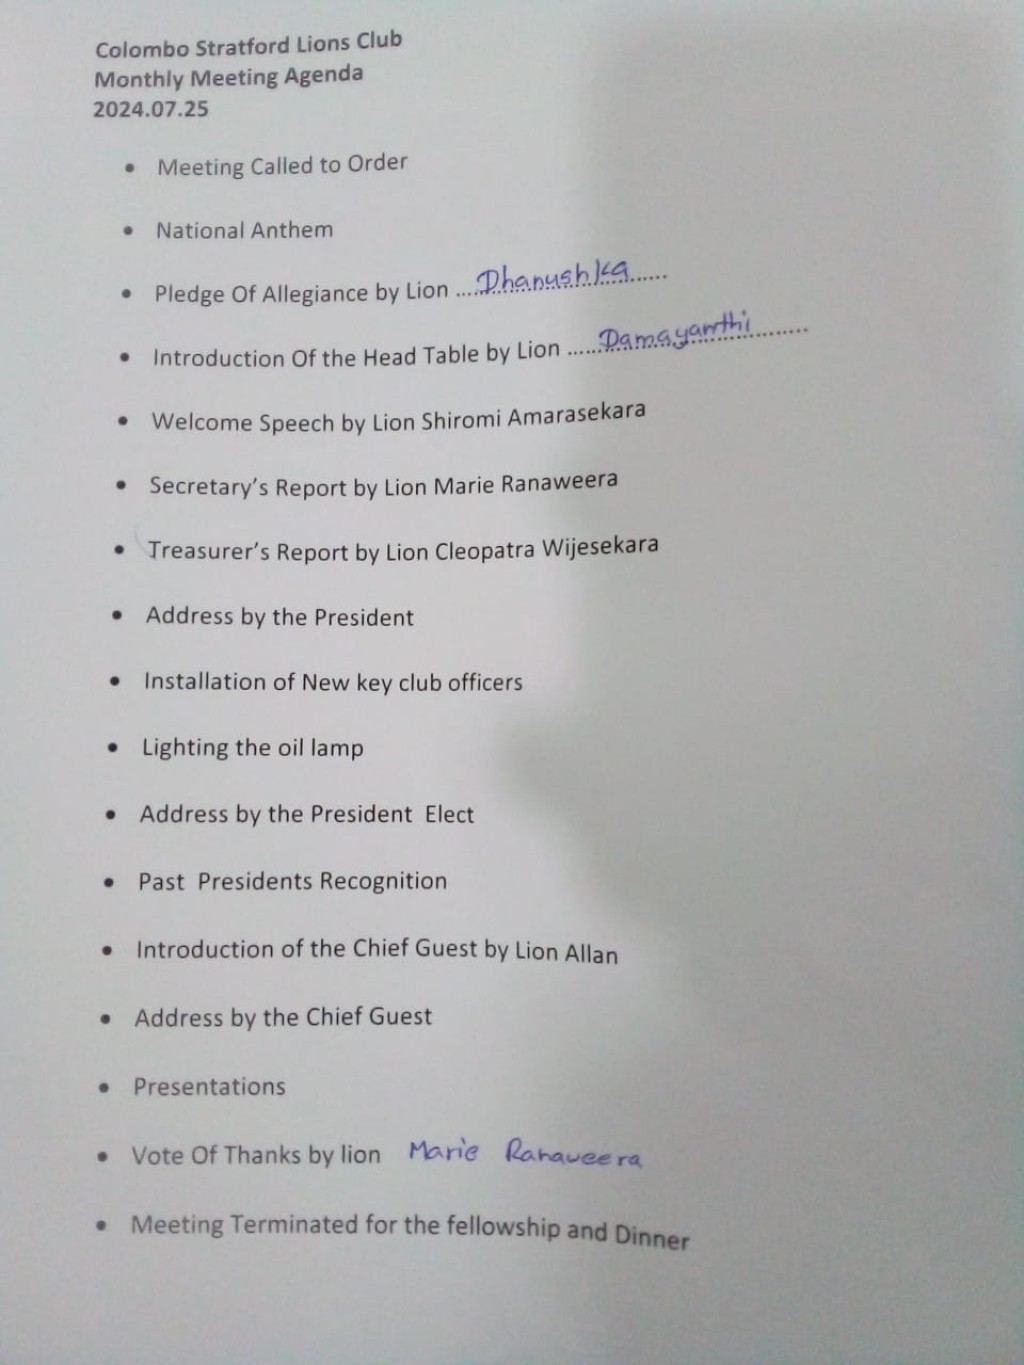 Colombo Stratford Lions Club
Monthly Meeting Agenda
2024.07.25
• Meeting Called to Order
• National Anthem
• Pledge Of Allegiance by Lion ....Dhanushka......
• Introduction Of the Head Table by Lion ......Damayanthi.........
• Welcome Speech by Lion Shiromi Amarasekara
• Secretary's Report by Lion Marie Ranaweera
• Treasurer's Report by Lion Cleopatra Wijesekara
• Address by the President
• Installation of New key club officers
• Lighting the oil lamp
• Address by the President  Elect
• Past  Presidents Recognition
• Introduction of the Chief Guest by Lion Allan
• Address by the Chief Guest
• Presentations
• Vote Of Thanks by lion Marie Ranaweera
• Meeting Terminated for the fellowship and Dinner